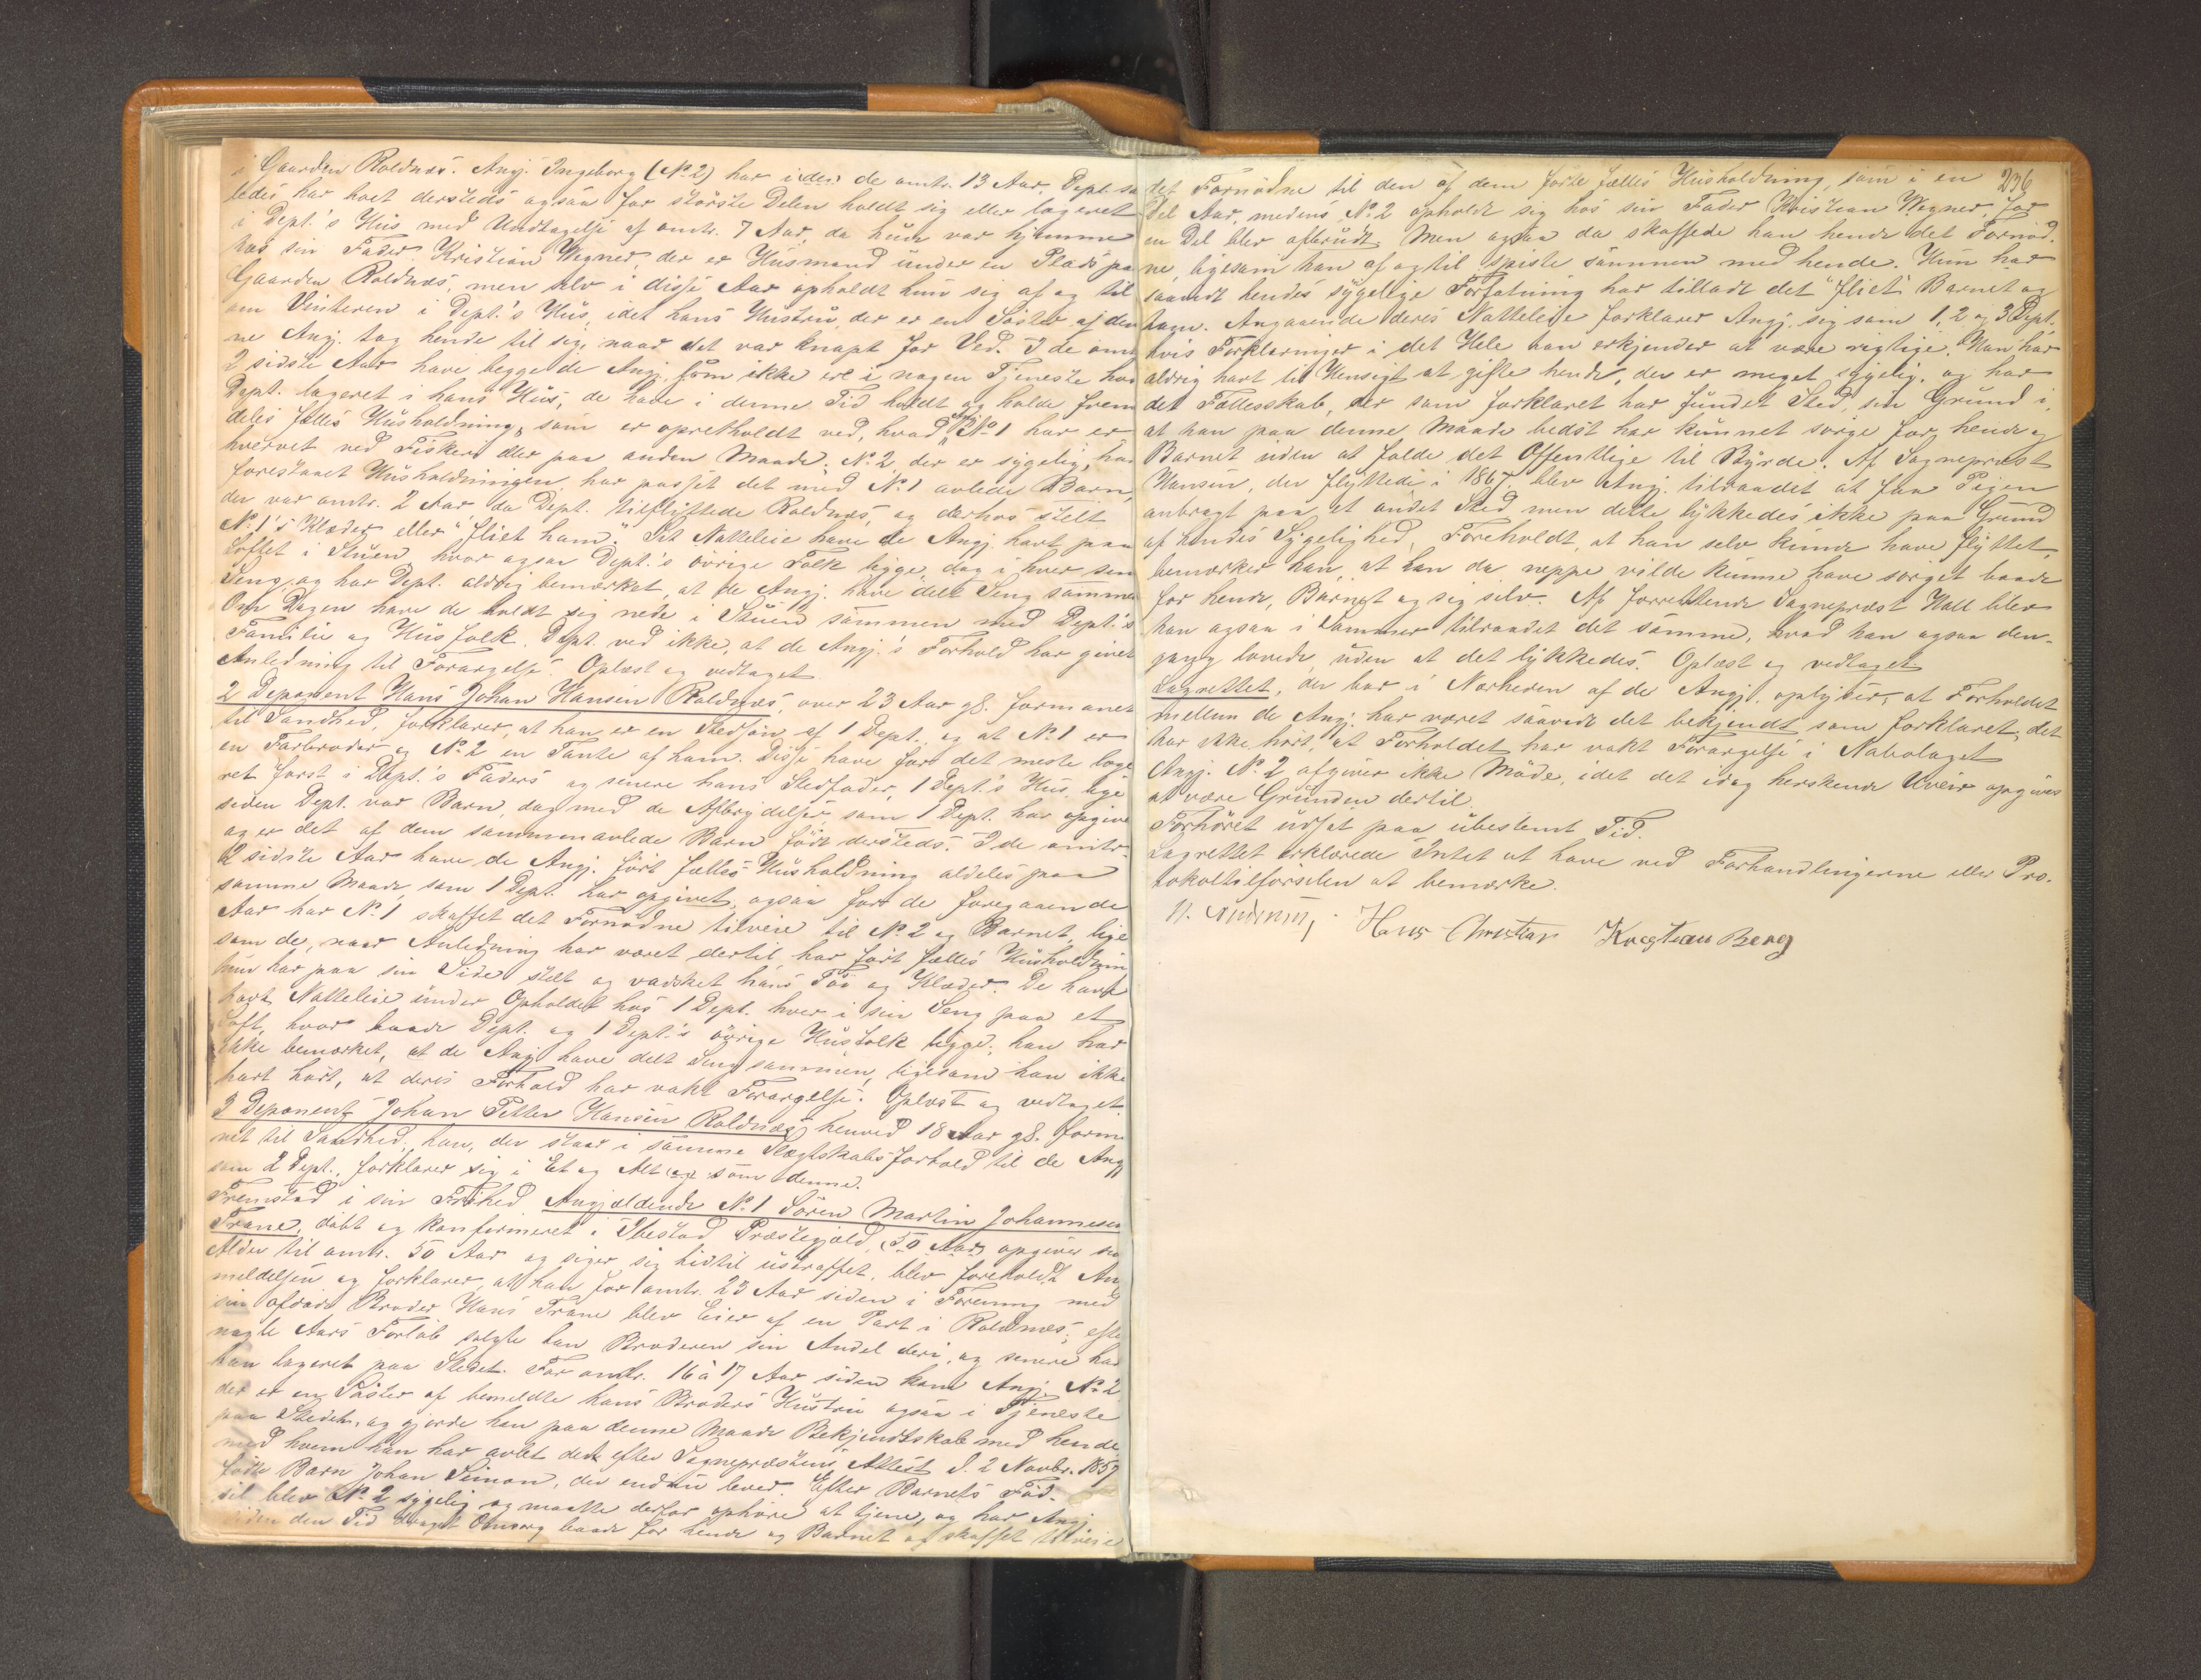 i Gaarden Roldnæs. Angj. Ingeborg (No 2) har i den de omtr. 13 Aar, Dept. sa
ledes har boet dersteds ogsaa for störste Delen holdt sig eller logeret
i Dept.'s Hus med Undtagelse af omtr. 7 Aar, da hun var hjemme
hos sin Fader Kristian Wegner, der er Husmand under en Plads paa
Gaarden Roldnæs, men selv i disse Aar opholdt hun sig af og til
om Vinteren i Dept.'s Hus, idet hans Hustru, der er en Söster af den
ne Angj. tog hende til sig, naar det var knapt for Ved. I de omtr
2 sidste Aar have begge de Angj. som ikke ere i nogen Tjeneste hos
Dept. logeret i hans Hus, de have i denne Tid holdt og holde frem
deles fælles Husholdning, som er opretholdt ved, hvad No 1 har er
hvervet ved Fiskeri eller paa anden Maade. No 2, der er sygelig, har
forestaaet Husholdningen, har passet det med No 1 avlede Barn,
der var omtr. 2 Aar da Dept. tilflyttede Roldnæs, og derhos stelt
No 1's Klæder eller "fliet ham". Sit Natteleie have de Angj. havt paa
Loftet i Stuen, hvor ogsaa Dept.'s övrige Folk ligge, dog i hver sin
Seng, og har Dept. aldrig bemærket, at de Angj. have delt Seng sammen
Om Dagen have de holdt sig nede i Stuen sammen med Dept.'s
Familie og Husfolk. Dept. ved ikke, at de Angj.'s Forhold har givet
Anledning til Forargelse. Oplæst og vedtaget
2 Deponent Hans Johan Hansen Roldnæs, over 23 Aar gl. formanet
til Sandhed, forklarer, at han er en Stedsön af 1 Dept. og at No 1 er
en Farbroder og No 2 en Tante af ham. Disse have for det meste loge
ret först i Dept.'s Faders og senere hans Stedfader, 1 Dept.'s Hus, lige
siden Dept. var Barn, dog med de Afbrydelser, som 1 Dept. har opgivet
og er det af dem sammenavlede Barn födt dersteds. I de omtr.
2 sidste Aar have de Angj. fört fælles Husholdning aldeles paa
samme Maade, som 1 Dept. har opgivet, ogsaa for de foregaaende
Aar har No 1 skaffet det Fornödne tilveie til No 2 og Barnet, lige
som de, naar Anledning har været dertil har fört fælles Husholdning
hun har paa sin Side stelt og vasket hans Töi og Klæder. De have
havt Natteleie under Opholdet hos 1 Dept. hver i sin Seng paa et
Loft, hvor baade Dept. og 1 Dept.'s övrige Husfolk ligge; han har
ikke bemærket, at de Angj have delt Seng sammen, ligesom han ikke
havt hört, at deres Forhold har vakt Forargelse. Oplæst og vedtaget
3 Deponent Johan Petter Hansen Roldnæs henved 18 Aar gl. forma
net til Sandhed, han, der staar i samme Slægtskabsforhold til de Angj
som 2 Dept., forklarer sig i Et og Alt som denne.
Fremstod i sin Frihed Angjældende No 1 Sören Martin Johannesen
Trane, döbt og konfirmeret i Ibestad Præstegjæld, (50 Aar) opgiver sin
Alder til omtr. 50 Aar og siger sig hidtil ustraffet, blev foreholdt An
meldelsen og forklarer, at han for omtr. 23 Aar siden i Forening med
sin afdöde Broder Hans Trane blev Eier af en Part i Roldnæs; efter
nogle Aars Forlöb solgte han Broderen sin Andel deri, og senere har
han logeret paa Stedet. For omtr. 16 à 17 Aar siden kom Angj. No 2
der er en Söster af bemeldte hans Broders Hustru ogsaa i Tjeneste
paa Stedet, og gjorde han paa denne Maade Bekjendtskab med hende
med hvem han har avlet det efter Sognepræstens Attest d. 2 Novbr. 1857
födte Barn Johan Simon, der endnu lever. Efter Barnets Föd-
sel blev No 2 sygelig og maatte derfor ophöre at tjene, og har Angj
siden den Tid draget Omsorg baade for hende og Barnet og skaffet tilveie
236
det Fornödne til den af dem förte fælles Husholdning, som i en
Del Aar, medens No 2 opholdt sig hos sin Fader Kristian Wegner, for
en Del blev afbrudt. Men ogsaa da skaffede han hende det Fornöd-
ne, ligesom han af og til spiste sammen med hende. Hun har
saavidt hendes sygelige Forfatning har tilladt det "fliet" Barnet og
ham. Angaaende deres Natteleie forklarer Angj. sig som 1, 2 og 3 Dept.
hvis Forklaringer i det Hele han erkjender at være rigtige. Han har
aldrig havt til Hensigt at gifte hende, der er meget sygelig, og har
det Fællesskab, der som forklaret har fundet Sted, sin Grund i,
at han paa denne Maade bedst har kunnet sorge for hende og
Barnet uden at falde det Offentlige til Byrde. Af Sognepræst
Hansen, der flyttede i 1867, blev Angj. tilraadet at faa Pigen
anbragt paa et andet Sted, men dette lykkedes ikke paa Grund
af hendes Sygelighed. Foreholdt, at han selv kunde have flyttet,
bemærker han, at han da neppe vilde kunne have sörget baade
for hende, Barnet og sig selv. Af forrettende Sognepræst Hall blev
han ogsaa i Sommer tilraadet det samme, hvad han ogsaa den-
gang lovede, uden at det lykkedes. Oplæst og vedtaget
Lagrettet, der bor i Nærheden af de Angj. oplyser, at Forholdet
mellem de Angj. har været saavidt det bekjendt som forklaret; det
har ikke hört, at Forholdet har vakt Forargelse i Nabolaget
Angj. No 2 afgiver ikke Möde, idet det idag herskende Uveir opgives
at være Grunden dertil.
Forhöret udsat paa ubestemt Tid.
Lagrettet erklærede Intet at have ved Forhandlingerne eller Pro-
tokoltilförselen at bemærke.
Hans Christian Kristian Berg